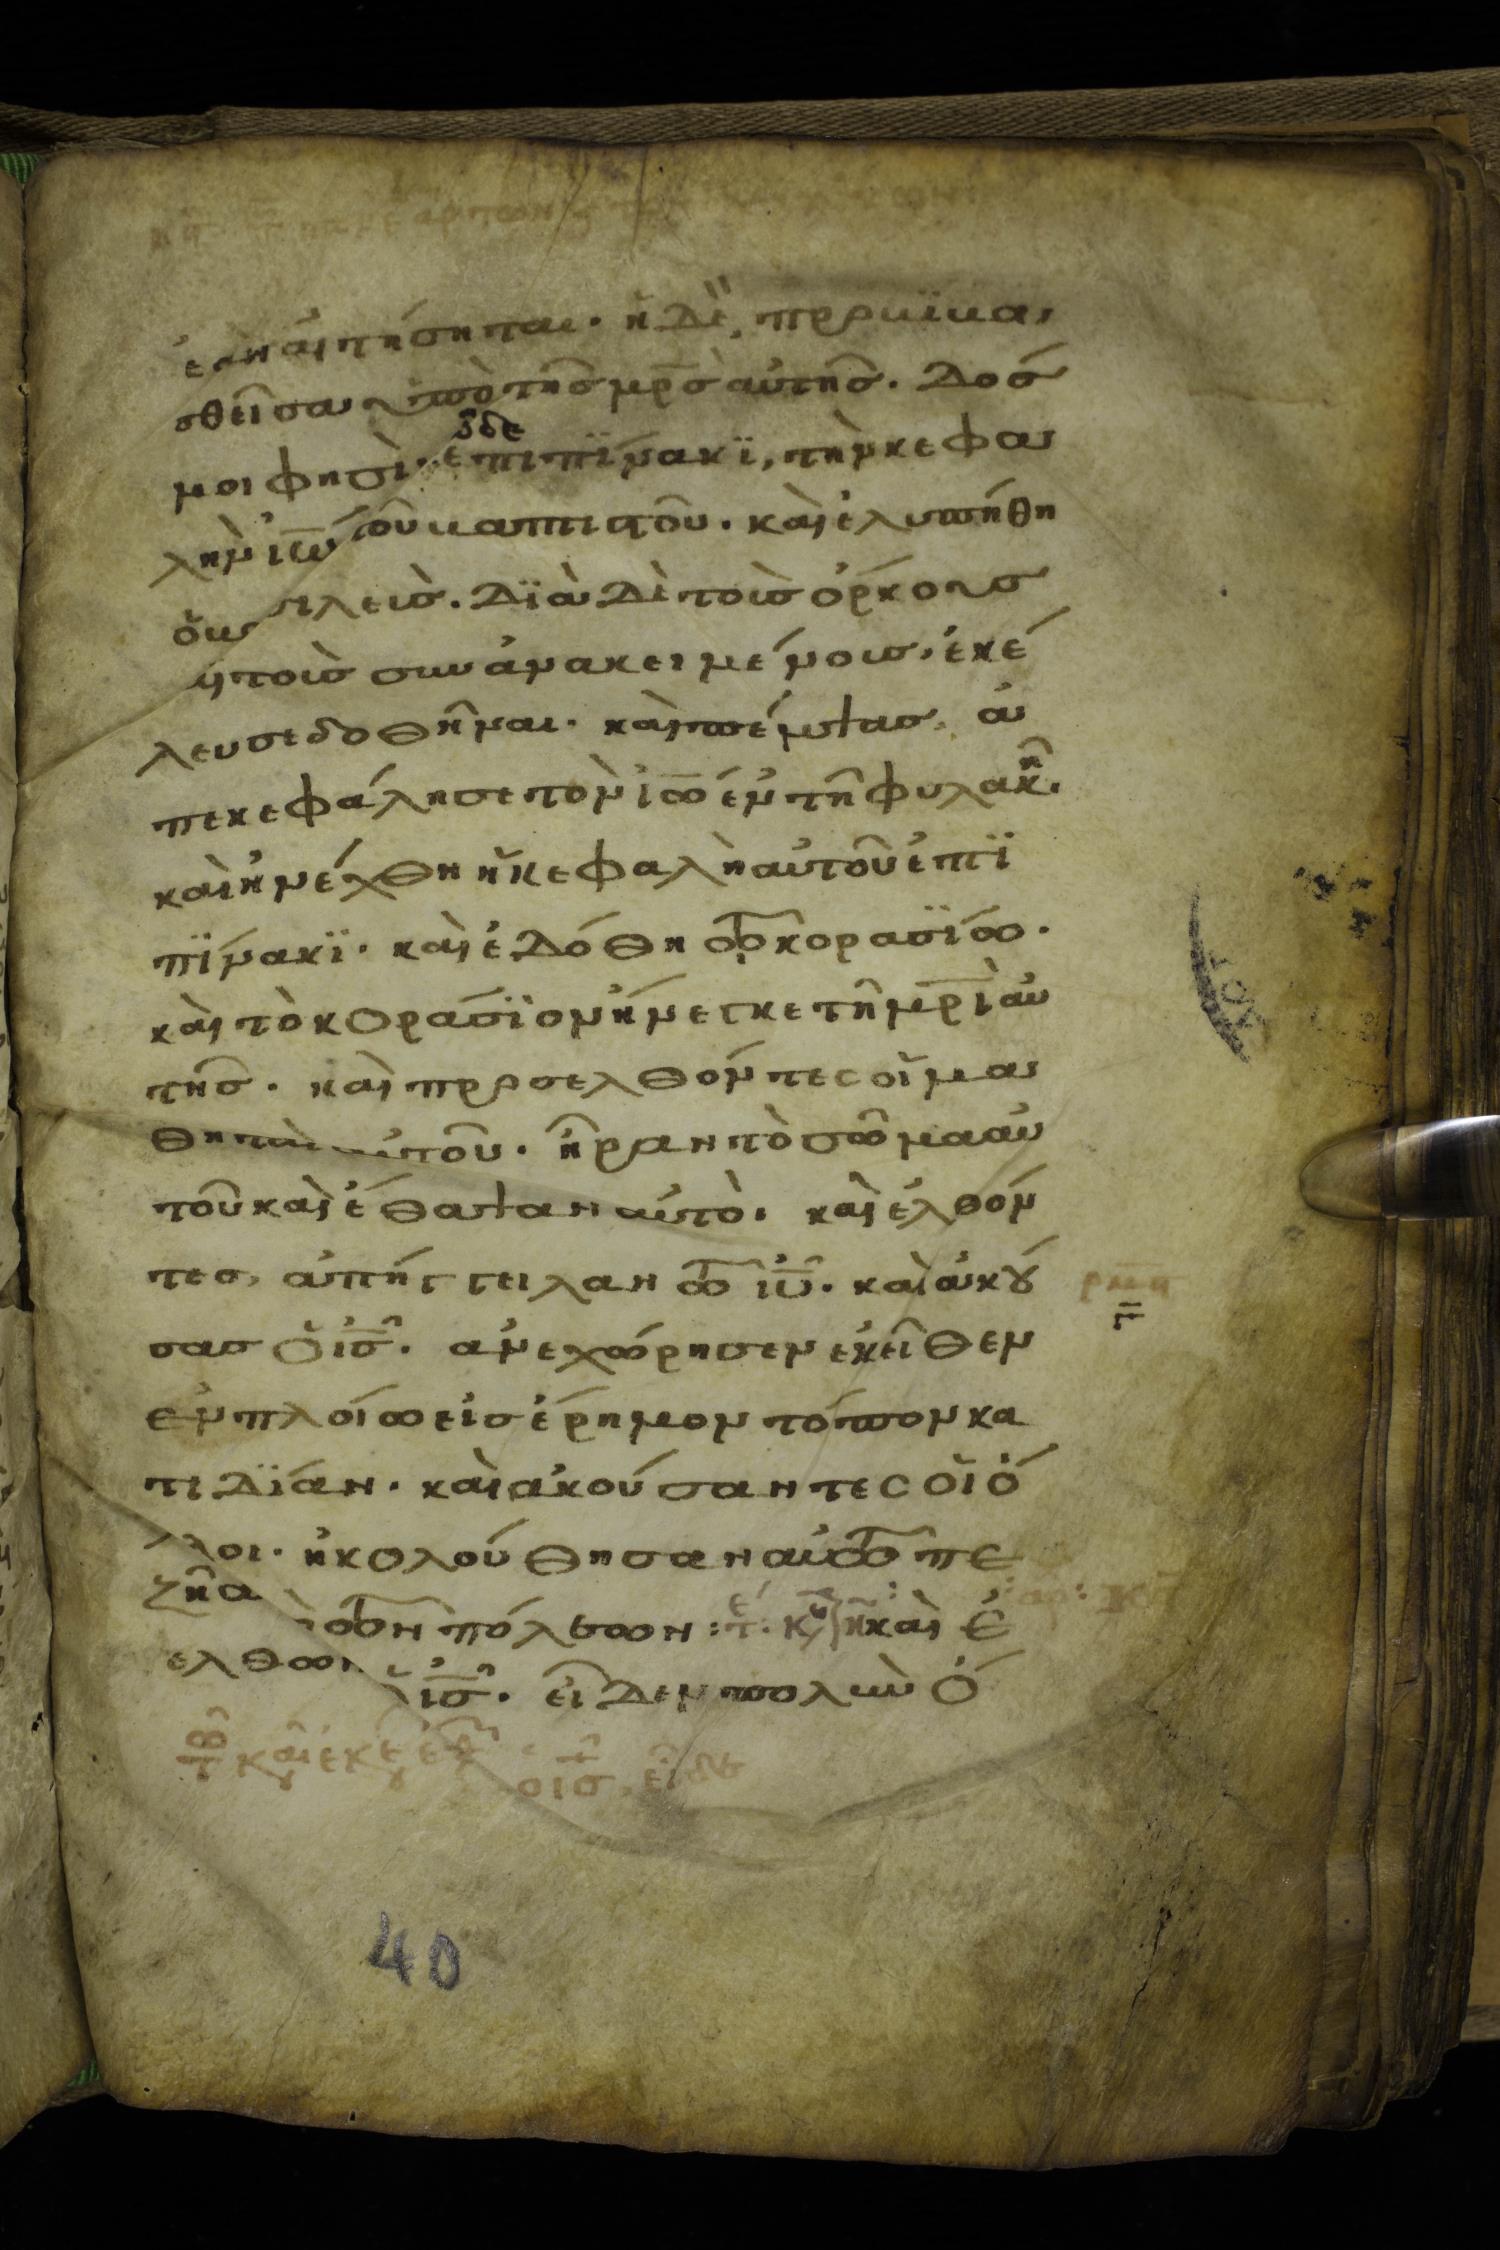 ἐὰν αἰτήσηται· ἡ δὲ, προβιβα
σθεῖσα ὑπὸ τῆς μρ̅ς αὐτῆς· δός
μοι φησὶν ὧδε ἐπι πΐνακϊ, τὴν κεφα
λὴν ἰω̅ τοῦ βαπτιστοῦ· καὶ ἐλυπήθη
ὁ βασιλεὺς· δϊὰ δὲ τοὺς ὅρκους
τοὺς συνἀνακειμένους, ἐκέ
λευσε δοθῆναι· καὶ πέμψας, ἀ
πεκεφάλησε τὸν ἰω̅ ἐν τῆ φυλακῆ·
καὶ ἠνέχθη ἡ κεφαλὴ αὐτοῦ ἐπϊ
πΐνακϊ· καὶ ἐδόθη τῶ κορασΐω·
καὶ τὸ κορασϊον ἤνεγκε τῆ μρ̅ὶ αὐ
τῆς· καὶ προσελθόντες οἱ μα
θηταὶ αὐτοῦ· ἦραν τὸ σῶμα αὐ
τοῦ καὶ ἔθαψαν αὐτὸ· καὶ ἐλθόν
τες, ἀπήγγειλαν τῶ ἰυ̅· καὶ ἀκού
σας ὁ ἰς̅· ἀνεχώρησεν ἐκεῖθεν
ἐν πλοίω εἰς ἔρημον τόπον κα
τιδΐαν· καὶ ἀκούσαντες οἱ ὄ
χλοι· ἠκολούθησαν αὐτῶ πε
ζῆ ἀπὸ τῶν πόλεων: καὶ ἐ
ελθὼν ὁ ἰς̅· εἶδεν πολὺν ὄ
40